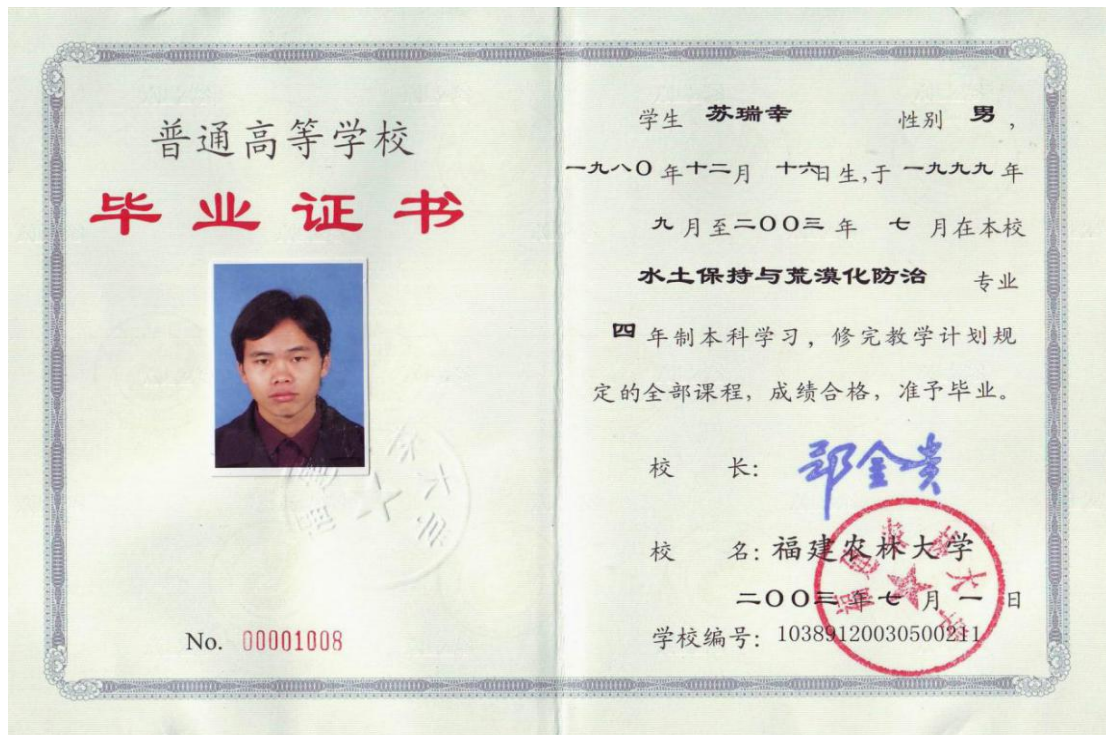 普通高等学校
毕业证书
No. 00001008
学生 苏瑞幸 性别 男，
一九八〇年十二月 十六日生,于一九九九年
九月至二〇〇三年 七 月在本校
水土保持与荒漠化防治 专业
四 年制本科学习，修完教学计划规
定的全部课程，成绩合格，准予毕业。
校 长:
校 名: 福建农林大学
二〇〇三年七月一日
学校编号: 10389120030500211
福建农林大学